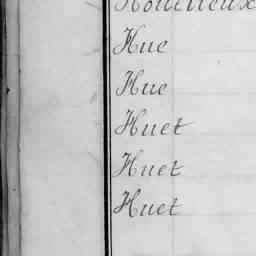 Hue
Hue
Huet
Huet
Huet